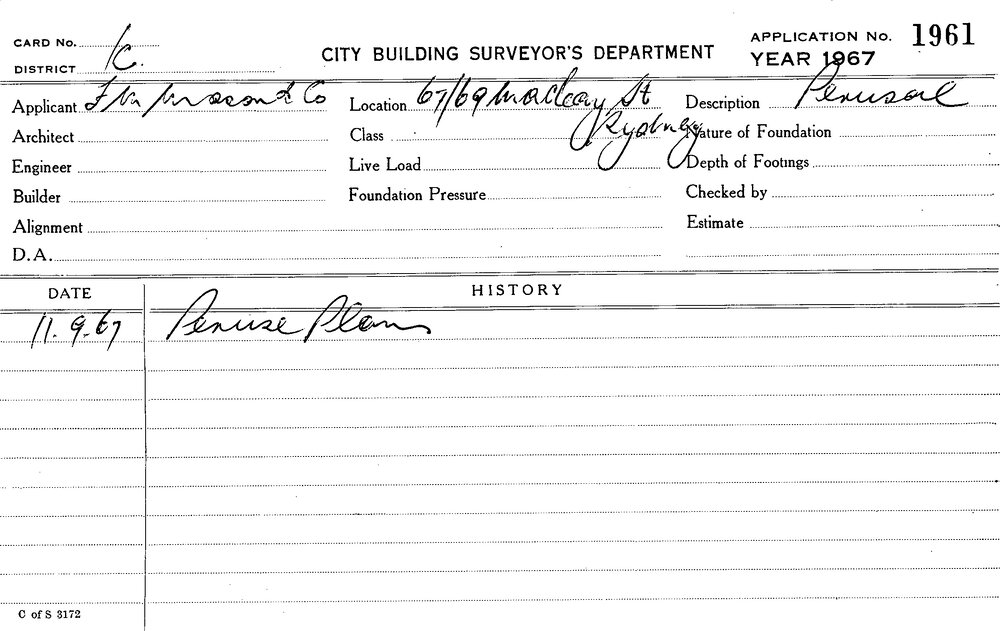 CARD No. 
DISTRICT 1c.
CITY BUILDING SURVEYOR'S DEPARTMENT
APPLICATION No. 1961
YEAR 1967
Applicant Mason & Co
Location 67/69 Macleay St
Description Perusal
Architect
Class
Rydney
Nature of Foundation
Engineer
Live Load
Depth of Footings
Builder
Foundation Pressure
Checked by
Alignment
Estimate
D.A.
DATE HISTORY
11.9.67 Peruse Plans
C of S 3172